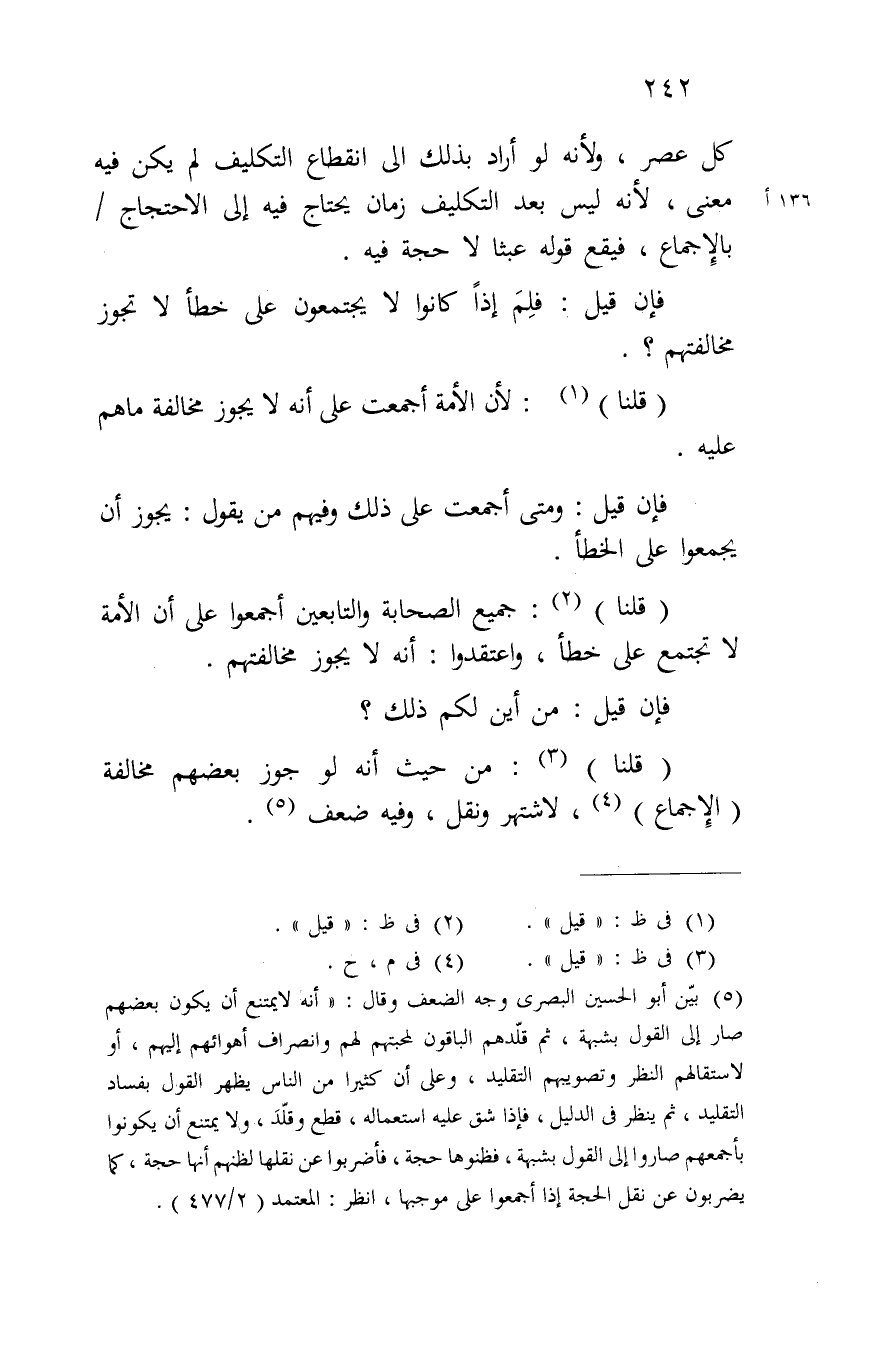 ٢٤٢
كل عصر ، ولأنه لو أراد بذلك الى انقطاع التكليف لم يكن فيه
معنى ، لأنه ليس بعد التكليف زمان يحتاج فيه إلى الاحتجاج / ١٣٦ أ
بالإجماع ، فيقع قوله عبثا لا حجة فيه .
فإن قيل : فلِمَ إذاً كانوا لا يجتمعون على خطأ لا تجوز
مخالفتهم ؟ .
( قلنا ) (١) : لأن الأمة أجمعت على أنه لا يجوز مخالفة ماهم
عليه .
فإن قيل : ومتى أجمعت على ذلك وفيهم من يقول : يجوز أن
يجمعوا على الخطأ .
( قلنا ) (٢) : جميع الصحابة والتابعين أجمعوا على أن الأمة
لا تجتمع على خطأ ، واعتقدوا : أنه لا يجوز مخالفتهم .
فإن قيل : من أين لكم ذلك ؟
( قلنا ) (٣) : من حيث أنه لو جوز بعضهم مخالفة
( الإجماع ) (٤) ، لاشتهر ونقل ، وفيه ضعف (٥) .
(١) فى ظ : « قيل » . (٢) فى ظ : « قيل » .
(٣) فى ظ : « قيل » . (٤) فى م ، ح .
(٥) بيّن أبو الحسين البصرى وجه الضعف وقال : « أنه لايمتنع أن يكون بعضهم
صار إلى القول بشبهة ، ثم قلّدهم الباقون لمحبتهم لهم وانصراف أهوائهم إليهم ، أو
لاستقالهم النظر وتصويبهم التقليد ، وعلى أن كثيرا من الناس يظهر القول بفساد
التقليد ، ثم ينظر فى الدليل ، فإذا شق عليه استعماله ، قطع وقلّدَ ، ولا يمتنع أن يكونوا
بأجمعهم صاروا إلى القول بشبهة ، فظنوها حجة ، فأضربوا عن نقلها لظنهم أنها حجة ، كما
يضربون عن نقل الحجة إذا أجمعوا على موجبها ، انظر : المعتمد ( ٤٧٧/٢ ) .